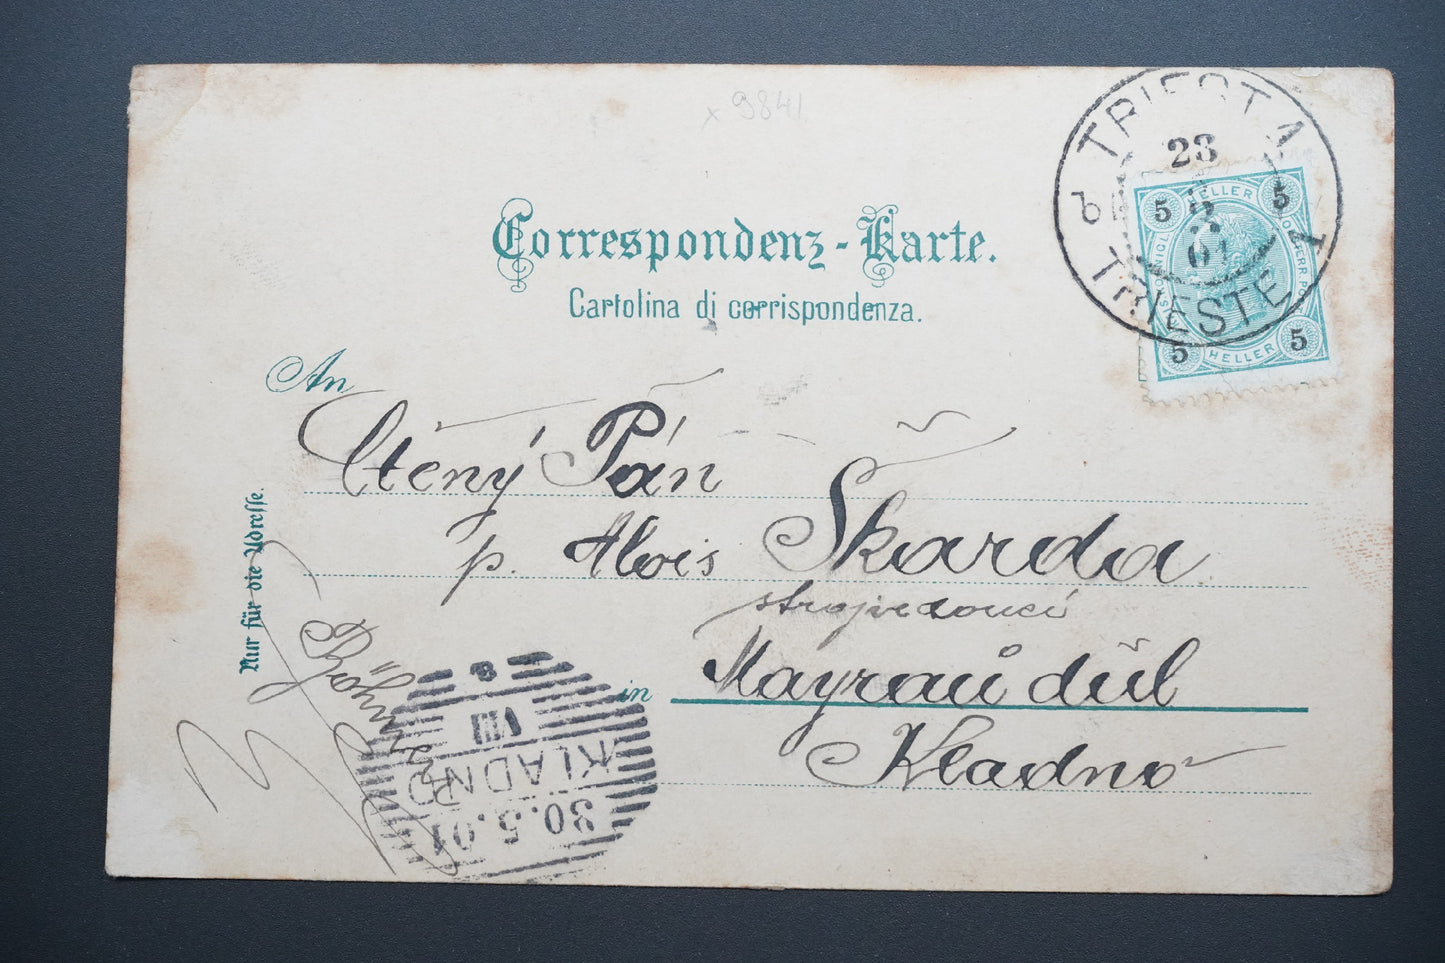 x 9841
TRIEST
TRIESTE 1
23
5
01
5 HELLER 5
5 HELLER 5
Correspondenz-Karte.
Cartolina di corrispondenza.
An
Ctěný Pán
p. Alois Škarda
strojvedoucí
in Mayrau důl
Kladno
Nur für die Adresse.
KLADNO
30.5.01
VIII
8